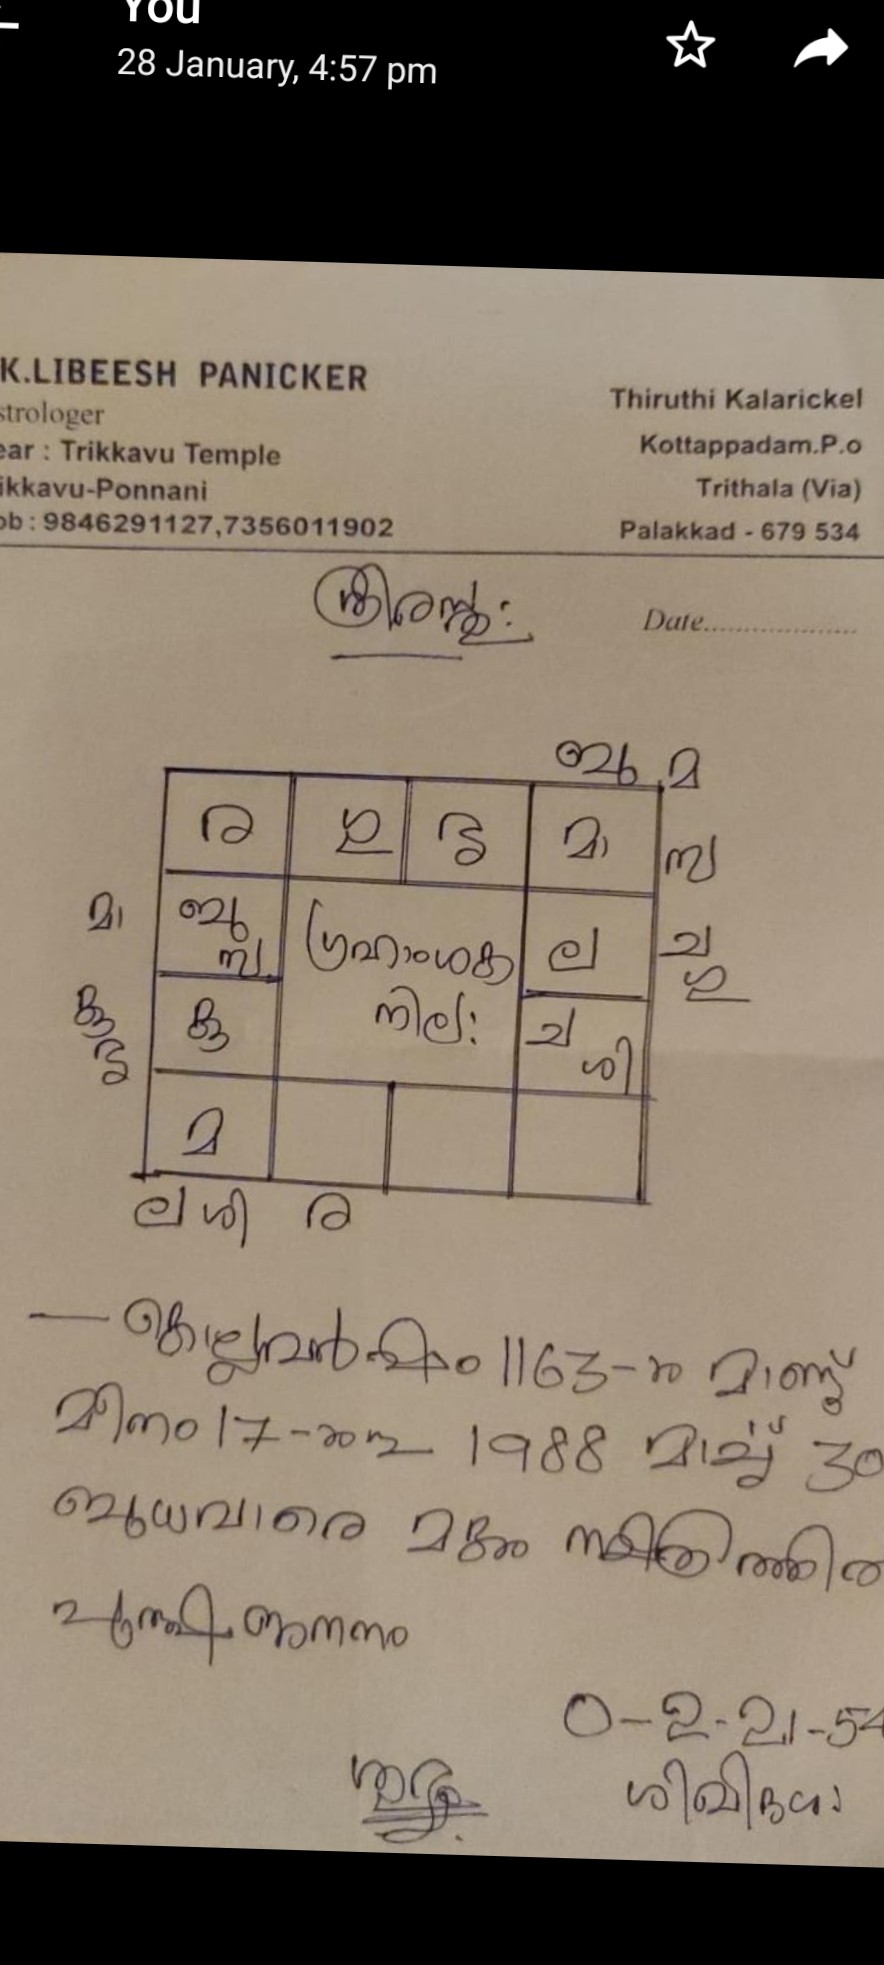 You
28 January, 4:57 pm
K.LIBEESH PANICKER
strologer
ear : Trikkavu Temple
ikkavu-Ponnani
ob : 9846291127,7356011902
Thiruthi Kalarickel
Kottappadam.P.o
Trithala (Via)
Palakkad - 679 534
Date...................
ബു മ
ര ഗു ഭൃ മാ
സ
മാ ബു ല ച
സ ഗു
ഗ്രഹാംശക
നില:
കു കു ച
ഭൃ ശി
മ
ല ശി ര
കൊല്ലവർഷം 1163-ാ മാണ്ട്
മീനം 17-ാം 1988 മാർച്ച് 30
ബുധവാരെ മകം
പുരുഷ ജനനം
0-2-21-54
ശുഭം ശിഖിദശാ